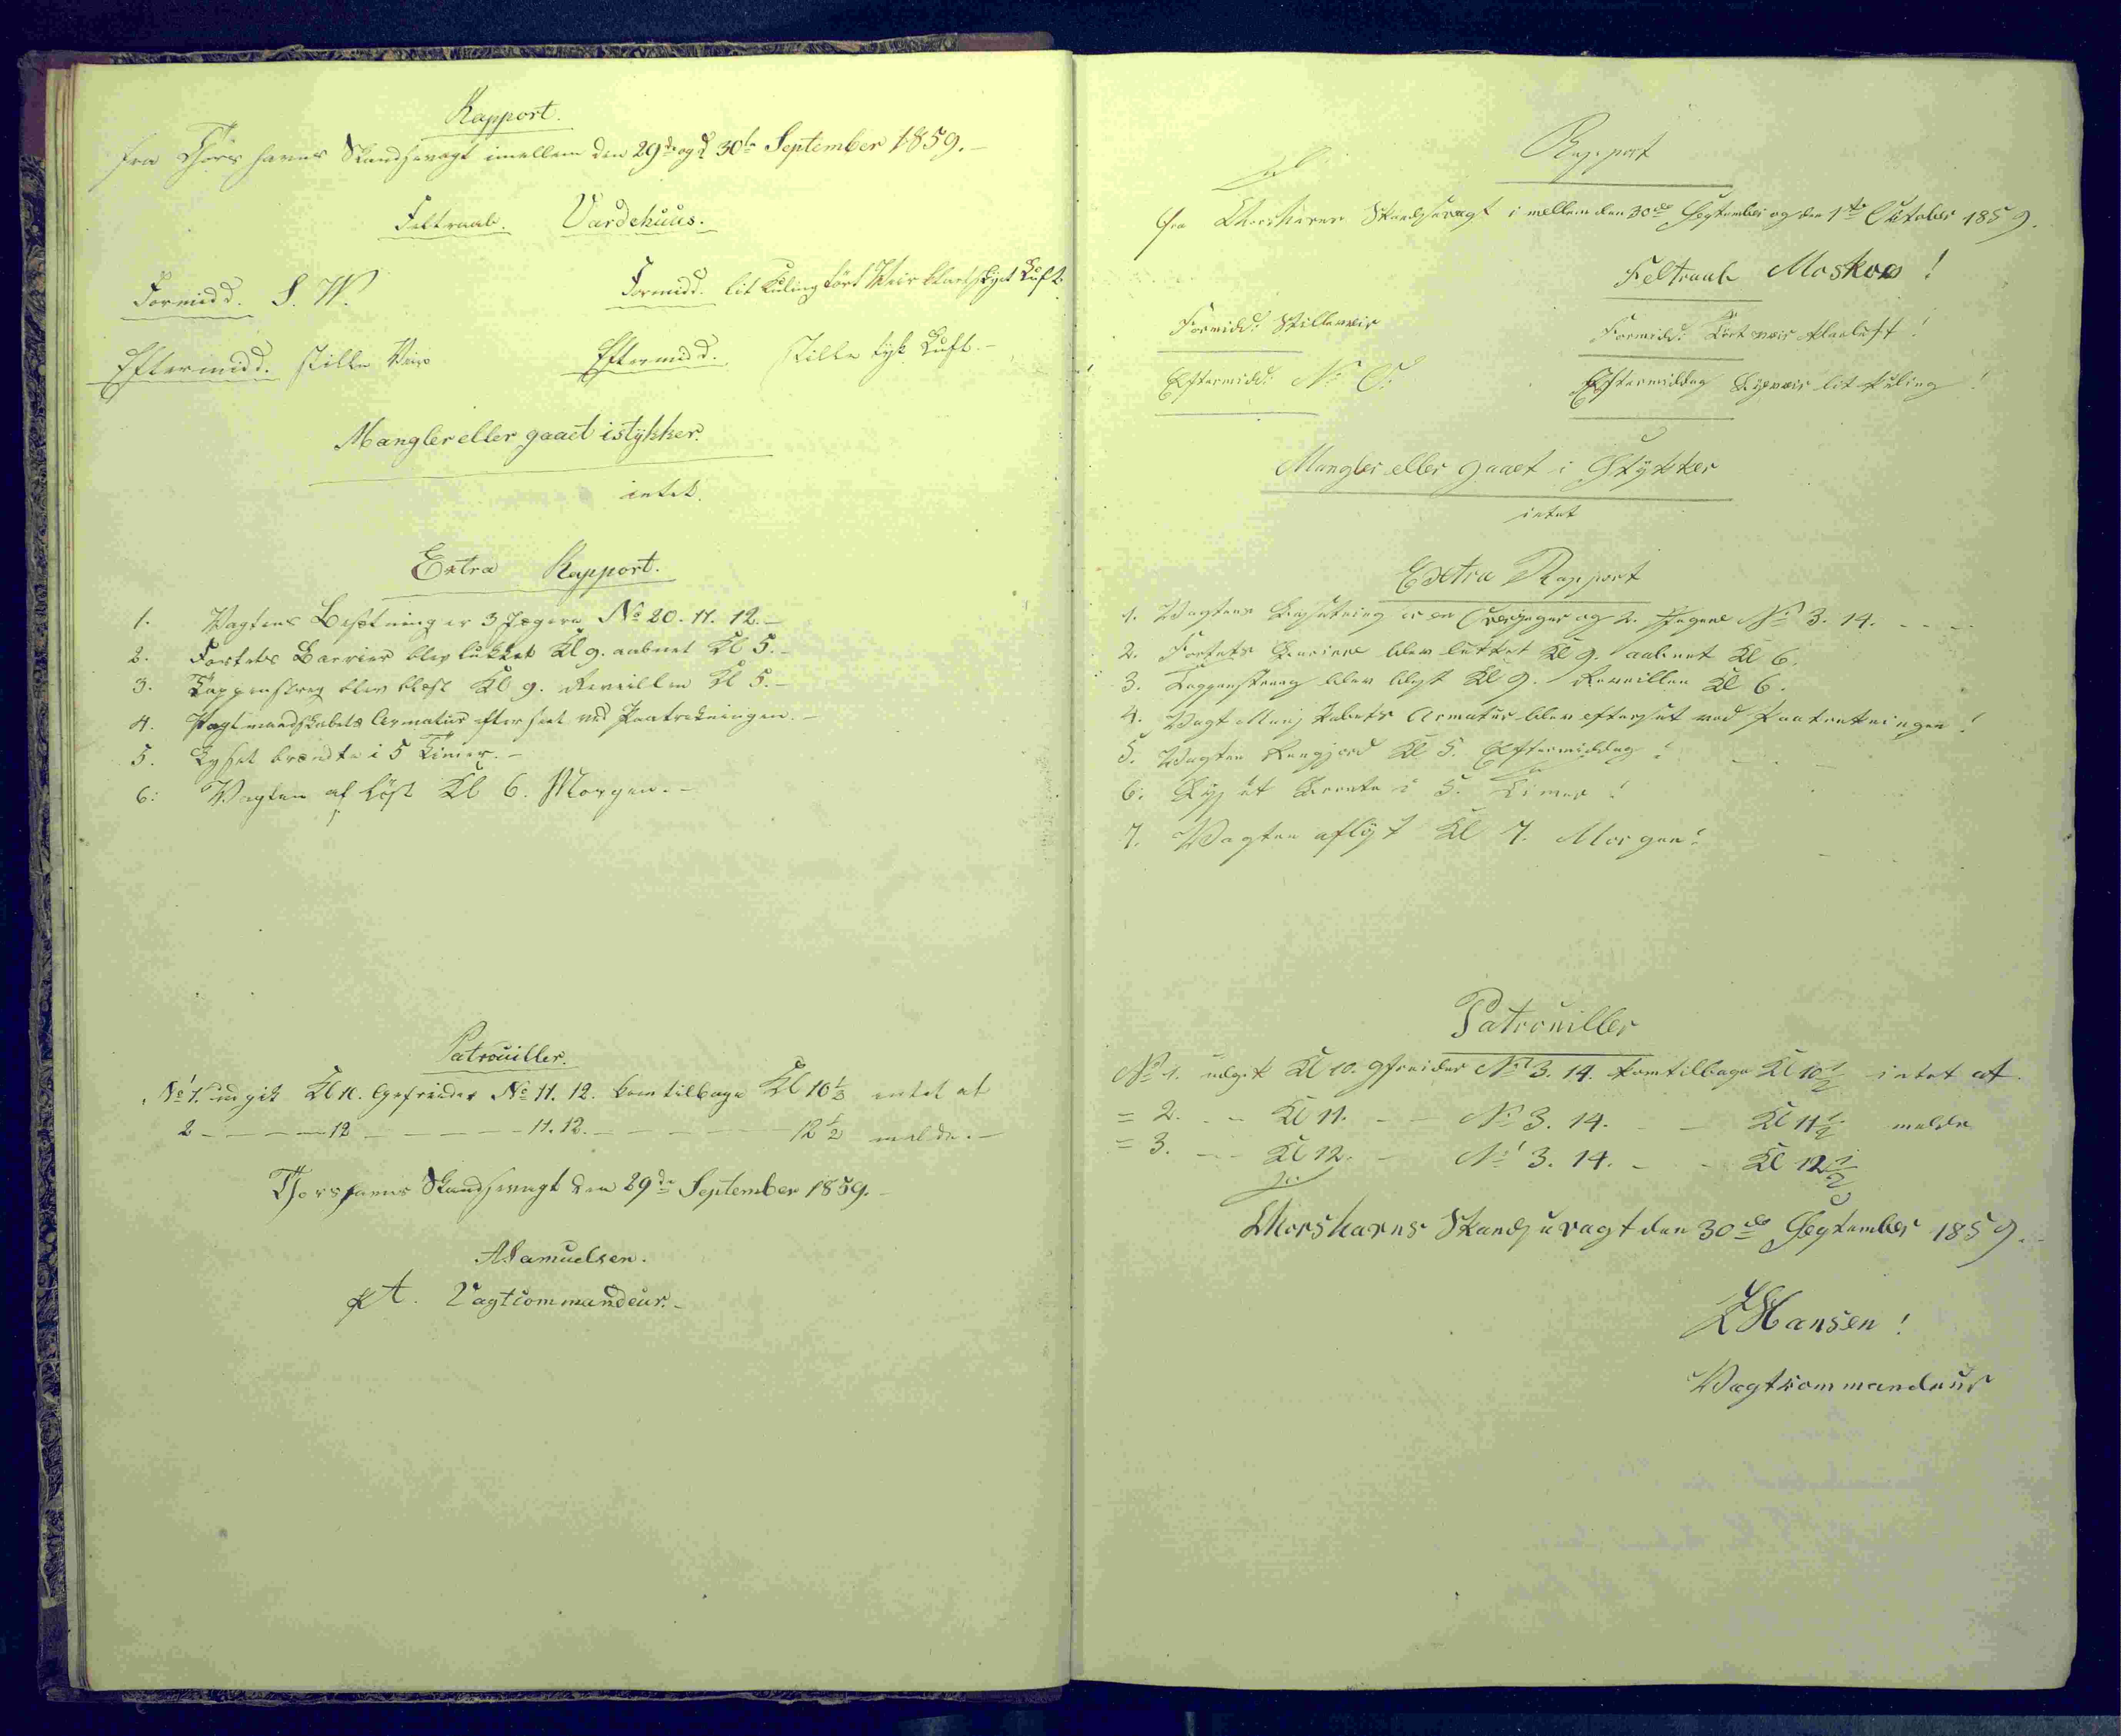 Rapport.
fra Thorshavns Skandsevagt imellem den 29de og d 30te September 1859.-
Feltraab. Vardehuus.
Formidd. S. W. Formidd. lit Kuling tört Veir klarskyet Luft
Eftermidd. stille Veir Eftermidd. Stille tyk Luft.-
Mangler eller gaaet istykker.
intet.
Extra Rapport.
1. Vagtens Besætning er 3 Jægere No 20. 11. 12.-
2. Fortets Barrier blev lukket Kl 9. aabnet Kl 5.-
3. Tappenstreg blev blæst Kl 9. Reveillen Kl 5.-
4. Vagtmandskabets Armatur efterseet ved Paatrækningen.-
5. Lyset brændte i 5 Timer.-
6: Vagten aflöst Kl 6. Morgen.-
Patrouiller.
No 1. udgik Kl 10. Gefreider No 11. 12. kom tilbage Kl 10½ intet at
2 - - - - 12 - - - - 11. 12. - - - - 12½ melde.-
Thorshavns Skandsevagt den 29de September 1859.-
ASamuelsen.
Vagtcommandeur.-
Rapport
fra Thorshavns Skandsevagt i mellem den 30te September og den 1ste October 1859.
Feltraab Moskva !
Formidd: Stilleveir Formidd: Tört veir klarluft !
Eftermidd: N. O: Eftermiddag veir lit kuling !
Mangler eller gaaet i Stykker
intet
Extra Rapport
1. Vagtens Besætning er en Overjæger og 2. Jægere No 3. 14. - - - -
2. Fortets Bariere blev lukket Kl 9. aabnet Kl 6.
3. Tappenstreeg blev blæst Kl 9. Reveillen Kl 6.
4. Vagt Mandskabets Armatur blev efterset ved Paatrækningen !
5. Vagten Rengjord Kl 5. Eftermiddag !
6: Lyset Brente i 5. Timer !
7. Vagten aflöst Kl 7. Morgen !
Patrouiller
No 1. udgik Kl 10. Gfreider No 3. 14. kom tilbage Kl 10½ intet at
= 2. - - Kl 11. - - No 3. 14. - - Kl 11½ melde
= 3. - - Kl 12. - No 3. 14. - - Kl 12½
Thorshavns Skandsevagt den 30te September 1859.
Hansen !
Vagtcommandeur